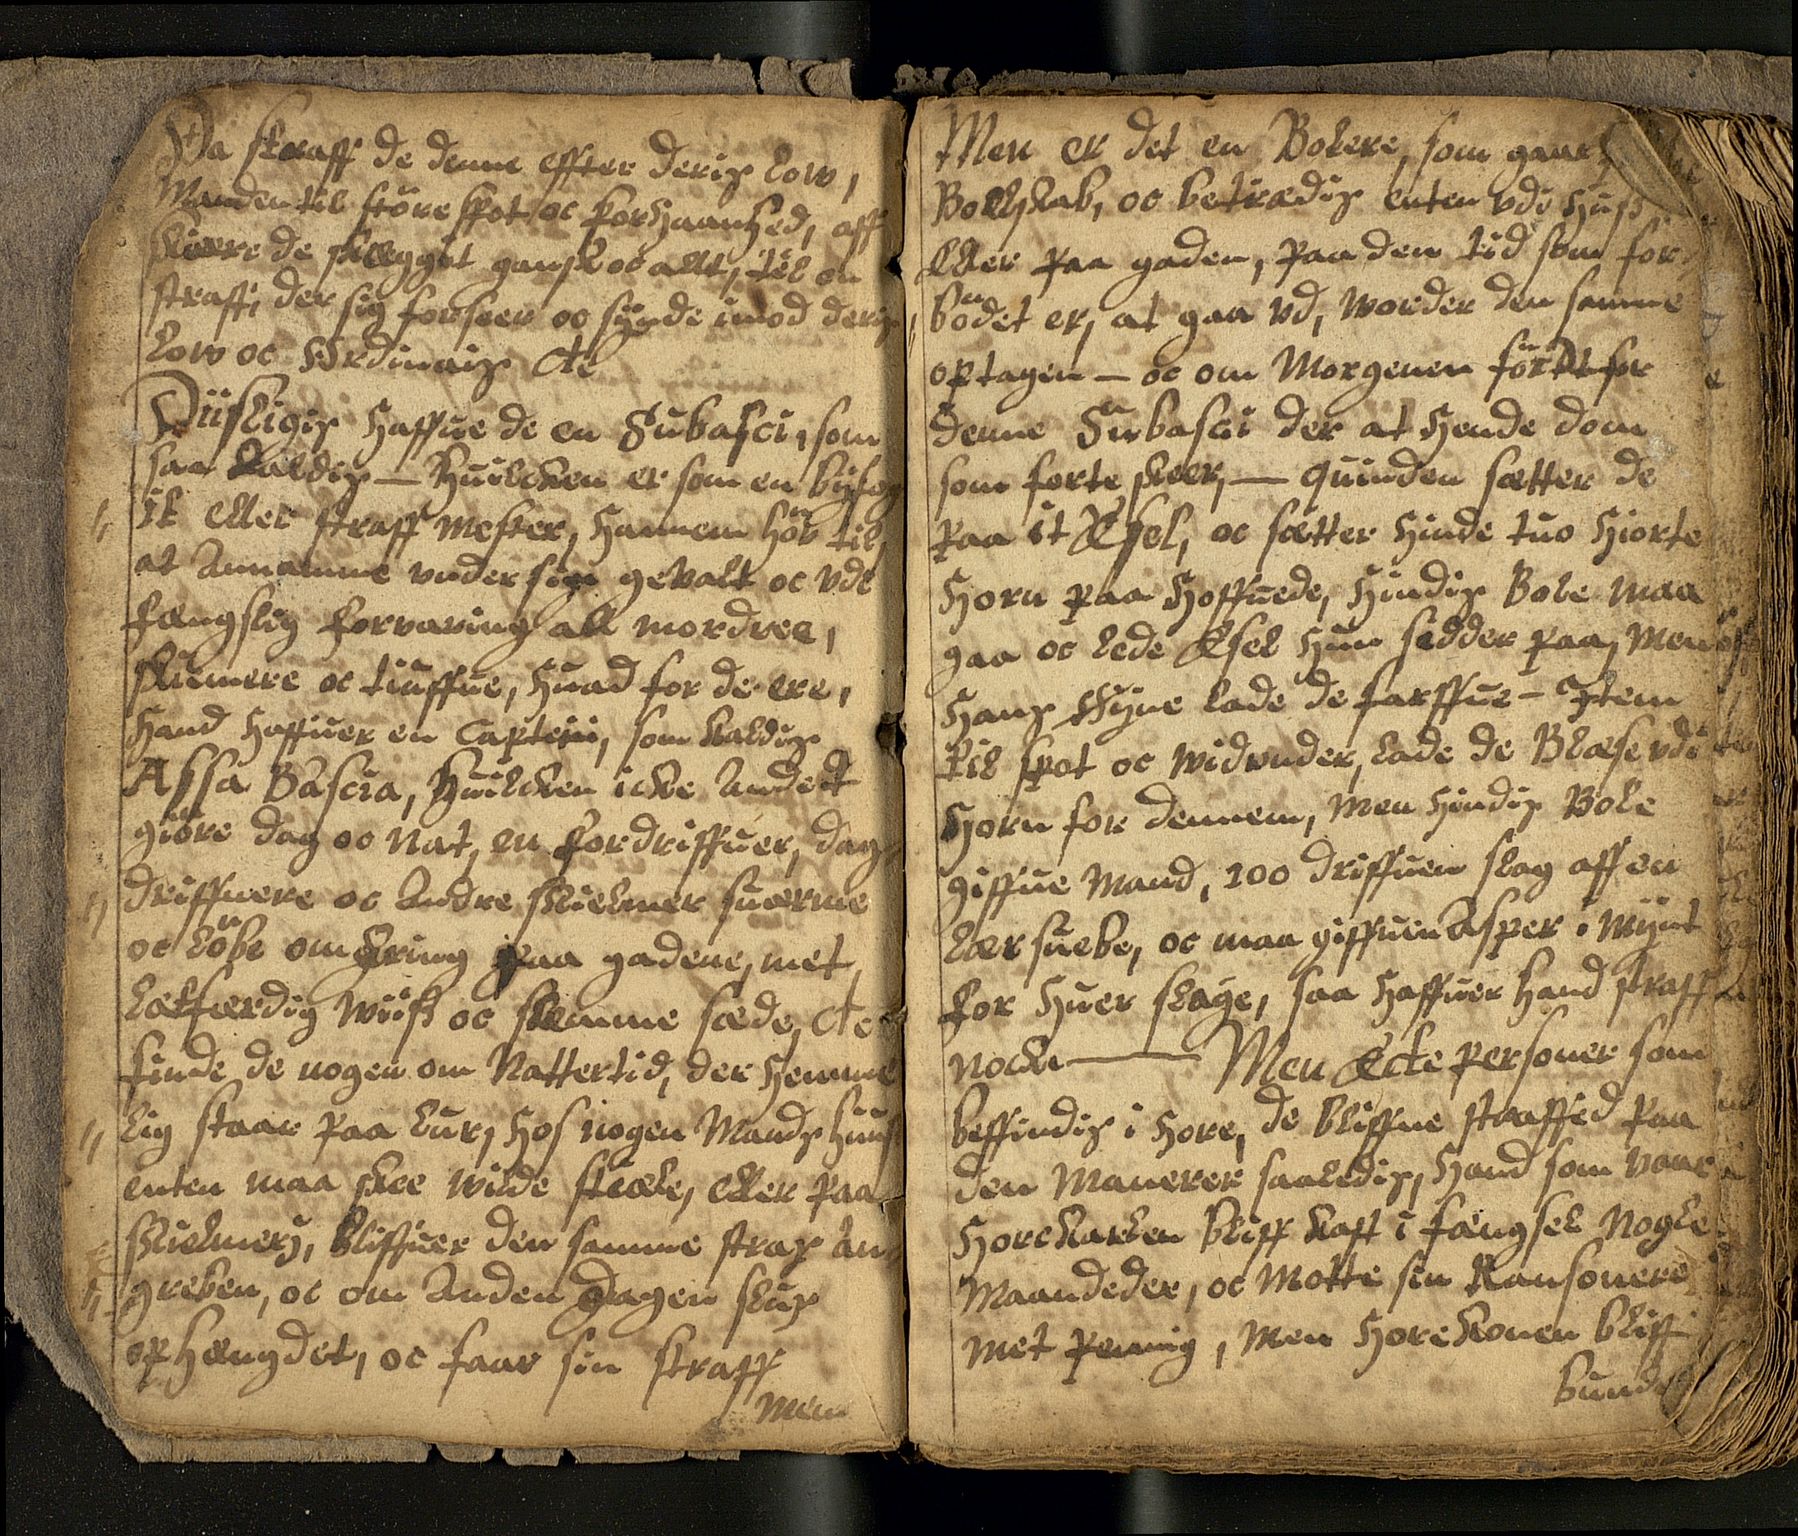 Da straff de denne effter deris low,
Manden til störe spot oc forhaanhed, aff
skiere de skegget gansk oc allt, til en
straff, der sig forseer oc synde imod deris
low oc Ordinaiz etc
Düsligis haffue de en Subasci, som
saa kaldis — huilcken er som en byfog
it eller straff mester, hannem hör til,
at Annamme under sin gevalt oc vdi
fængslig forvaring all mordere,
skiemere oc tiuffue, huad for de ere,
Hand haffuer en Captein, som kaldis
Assa Bascia, huilcken icke Andet
giöre dag oc Nat, en fordriffuer, dag
driffuere oc Andre skielmer suerme
oc löbe omkring paa gadene, met
letferdig wiiß oc skemme sæde, etc
finde de nogen om Nattertid, der hemme
lig staar paa lur, hos nogen Mands huus
enten maa skee wilde stiæle, eller paa
skielmerj, bliffuer den samme strax an
greben, oc om Anden Dagen slux
ophængdet, oc faar sin straff
Men
Men er det en Bolere, som gaar
Bolskab, oc betrædis enten vdi huß
eller paa gaden, paa den tid som for
bödet er, at gaa vd, worder den samme
optagen — oc om Morgenen fördt for
denne Subasci der at hende dom
som forte skeer, — quinden sætter de
paa it Æsel, oc sætter hinde tuo hiorte
horn paa Hoffuede, hindis Bole maa
gaa oc lede Æsel hun sedder paa, Men
hans Øyne lade de farffue — Item
til spot oc widunder, lade de Blæse vdi
horn for dennem, Men hindis Bole
giffue Mand, 100 driffuen slag aff en
lær suebe, oc maa giffue en Asper i Mynt
for huer slage, saa haffuer hand straff
nocke — Men Ecte personer som
beffindis i hore, de bliffue straffed paa
den Manerer saaledis, Hand som vaar
Horekarlen bliff kast i fængsel Nogle
Maandeder, oc Motte sin Ransonere
met penning, Men Horekonen bliff
bund